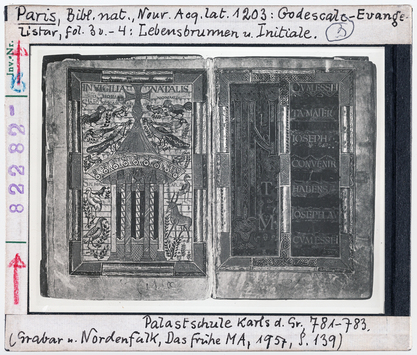 Paris, Bibl. nat., Nouv. Acq. lat. 1203: Godescalc-Evange-
listar, fol. 3v.-4: Lebensbrunnen u. Initiale.
Inv.-Nr.
82282
IN VIGILIA NATALIS
QVM ESSET
TA MATER
IOSEPH
CONVENIR
HABENS
IOSEPH A
QVM ESSET
Palastschule Karls d. Gr. 781-783.
(Grabar u. Nordenfalk, Das frühe MA, 1957, S. 139)